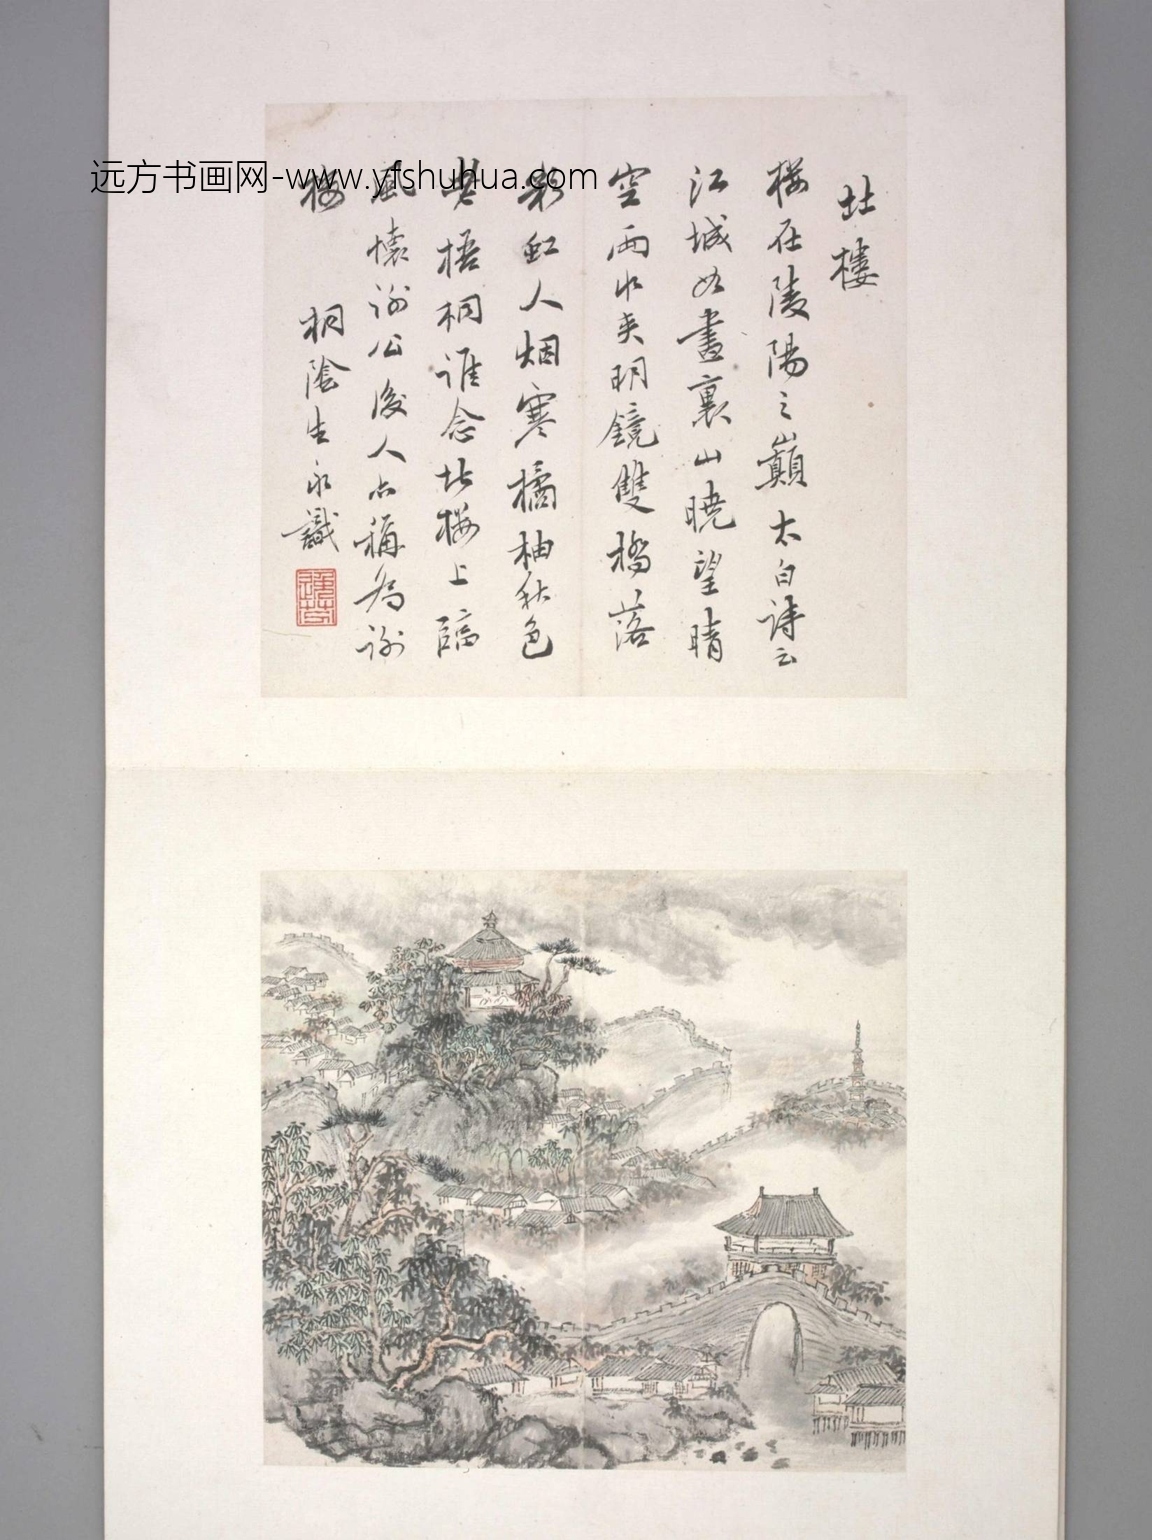 远方书画网-www.yfshuhua.com
北樓
樓在陵陽之巔太白詩云
江城如畫裏山曉望晴
空兩水夾明鏡雙橋落
彩虹人烟寒橘柚秋色
老梧桐誰念北樓上臨
風懷謝公後人亦稱為謝
樓 桐陰生永識